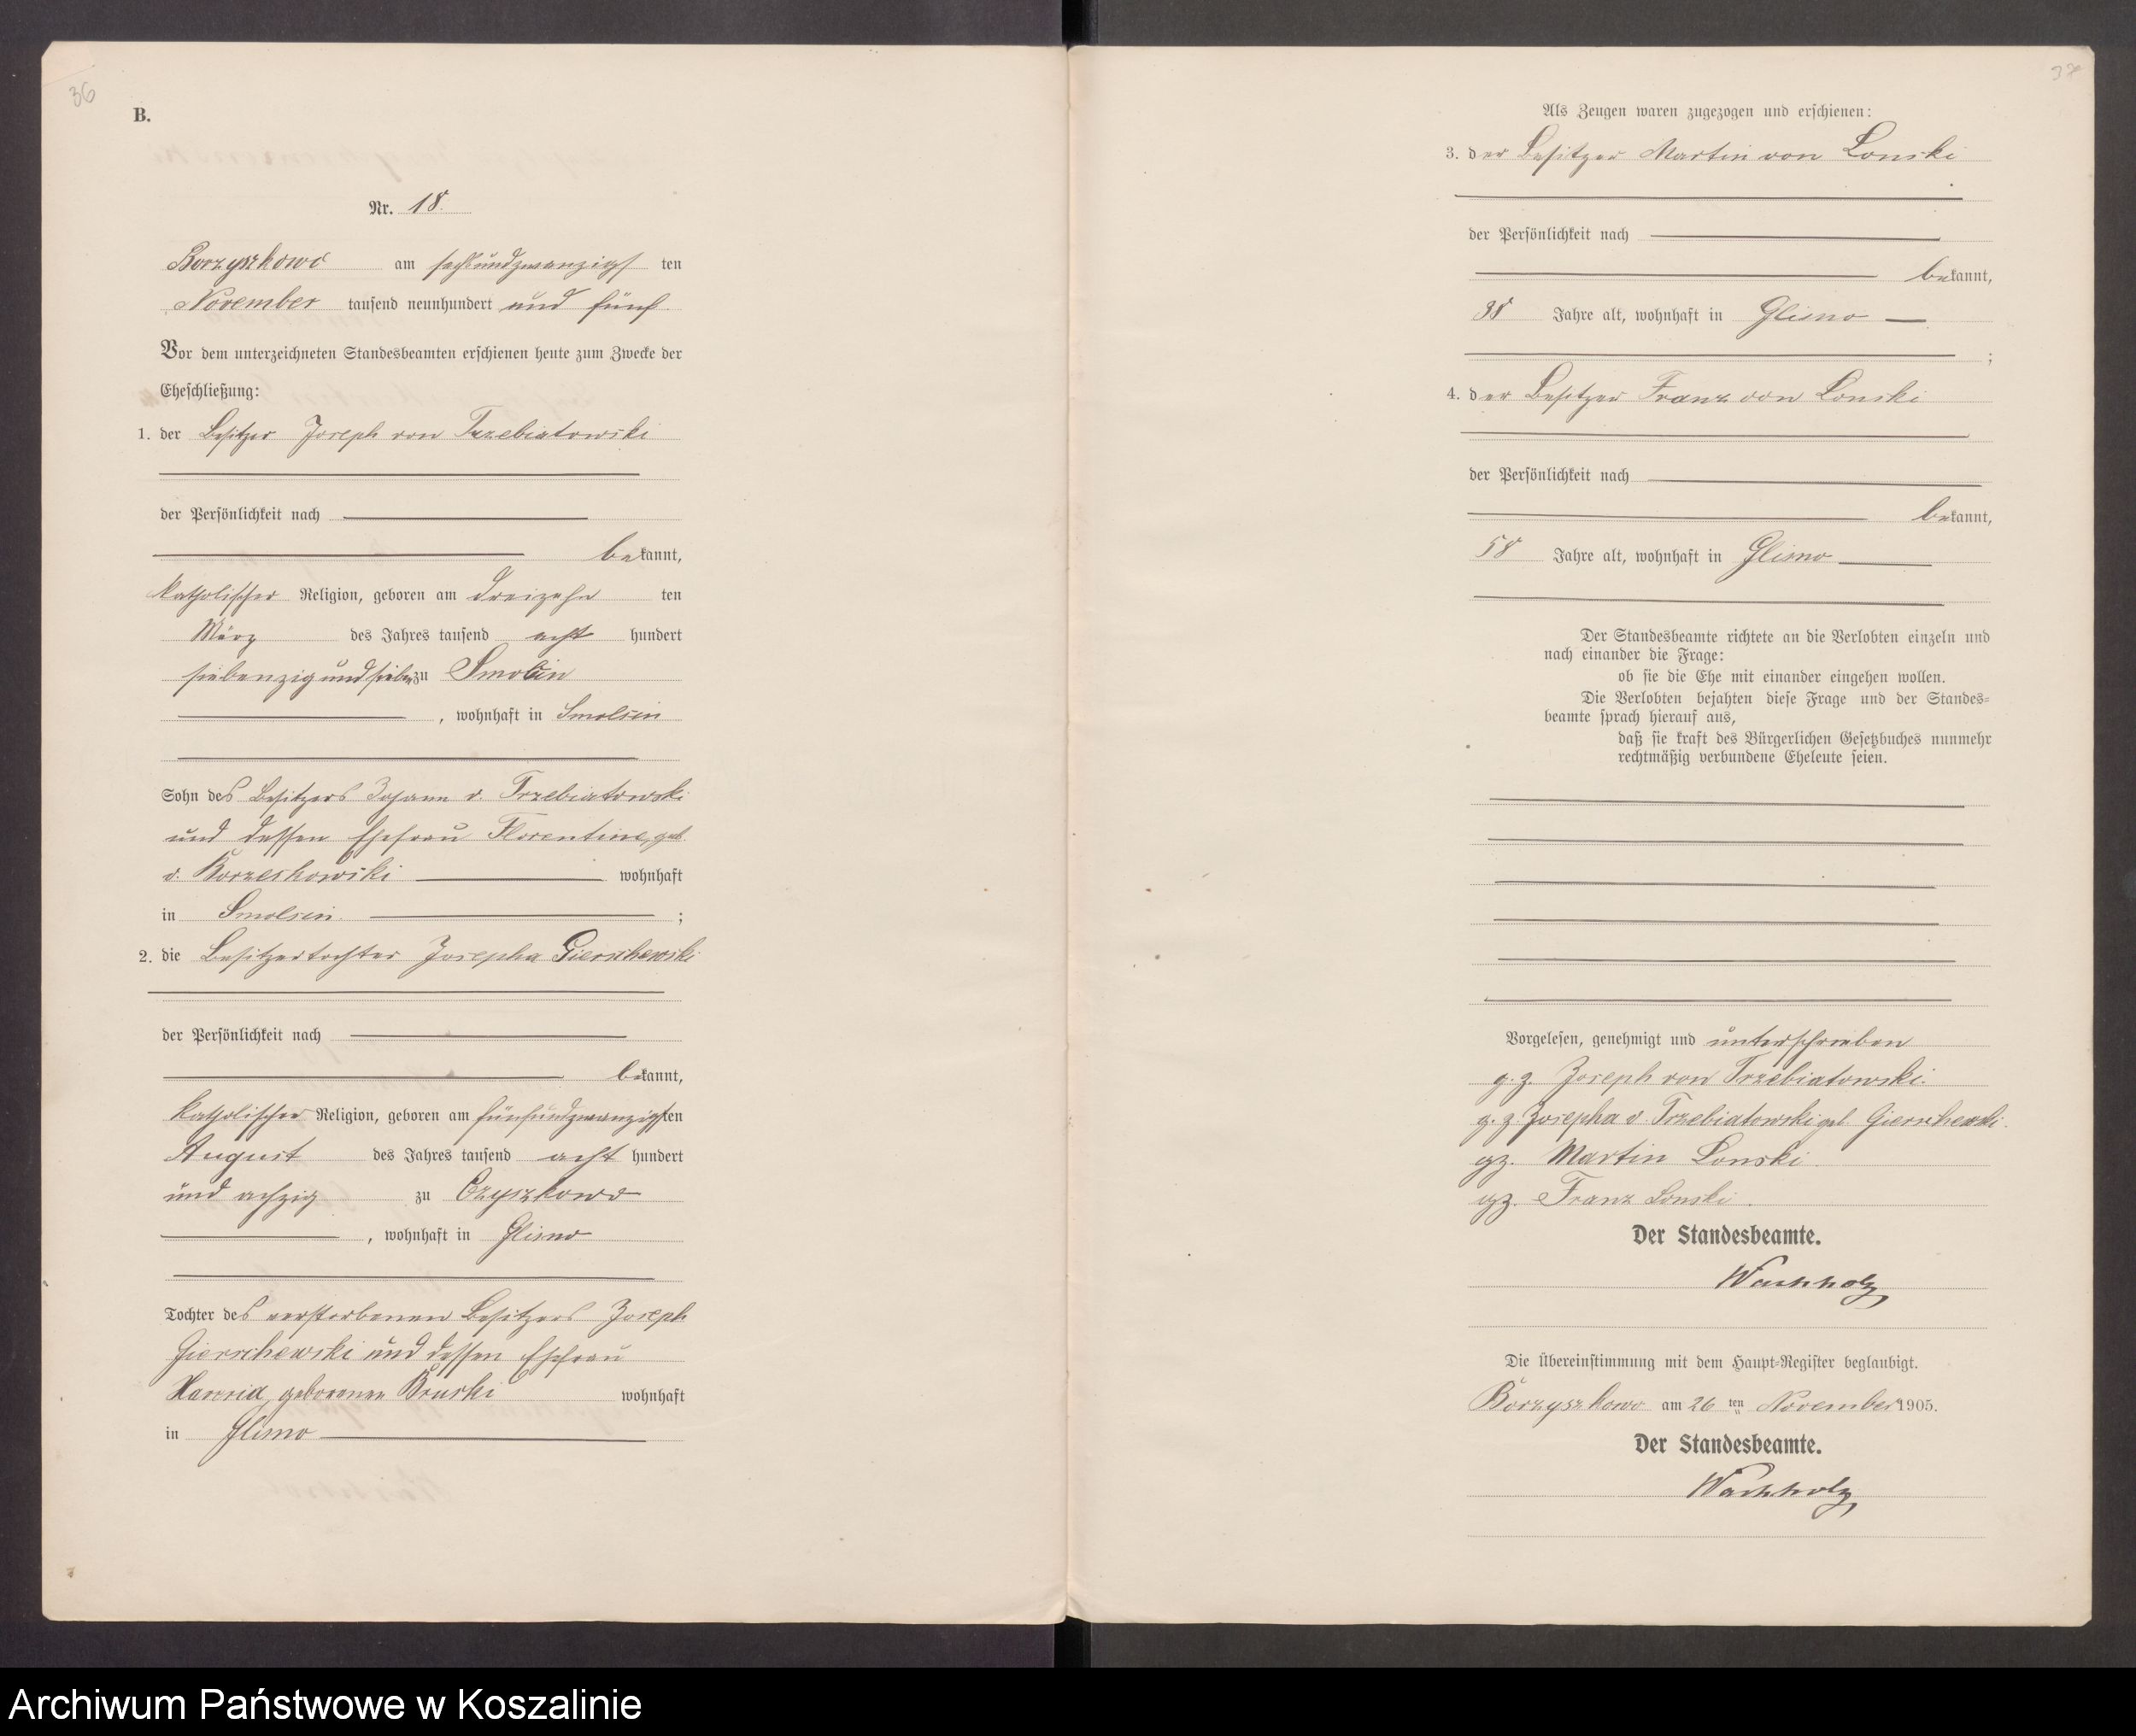 36
B.
Nr. 18.
Borzyszkowo am sechsundzwanzigsten
November tausend neunhundert und fünf
Vor dem unterzeichneten Standesbeamten erschienen heute zum Zwecke der
Eheschließung:
1. der Besitzer Joseph von Trzebiatowski
der Persönlichkeit nach
bekannt,
katholischer Religion, geboren am dreizehnten
März des Jahres tausend acht hundert
siebenzig und sieben zu Smolsin
, wohnhaft in Smolsin
Sohn des Besitzers Johann v. Trzebiatowski
und dessen Ehefrau Florentine, geb.
v. Borzeskowski wohnhaft
in Smolsin ;
2. die Besitzertochter Josepha Gierschewski
der Persönlichkeit nach
bekannt,
katholischer Religion, geboren am fünfundzwanzigsten
August des Jahres tausend acht hundert
und achzig zu Czyszkowo
, wohnhaft in Glisno
Tochter des verstorbenen Besitzers Joseph
Gierschewski und dessen Ehefrau
geborenen Bruski wohnhaft
in Glisno
37
Als Zeugen waren zugezogen und erschienen:
3. der Besitzer Martin von Lonski
der Persönlichkeit nach
bekannt,
38 Jahre alt, wohnhaft in Glisno
;
4. der Besitzer Franz von Lonski
der Persönlichkeit nach
bekannt,
58 Jahre alt, wohnhaft in Glisno
Der Standesbeamte richtete an die Verlobten einzeln und
nach einander die Frage:
ob sie die Ehe mit einander eingehen wollen.
Die Verlobten bejahten diese Frage und der Standes=
beamte sprach hierauf aus,
daß sie kraft des Bürgerlichen Gesetzbuches nunmehr
rechtmäßig verbundene Eheleute seien.
Vorgelesen, genehmigt und unterschrieben
g. z. Joseph von Trzebiatowski.
g. z. Josepha v. Trzebiatowski geb. Gierschewski.
gz. Martin Lonski.
gz. Franz Lonski.
Der Standesbeamte.
Wachholz
Die Übereinstimmung mit dem Haupt=Register beglaubigt.
Borzyszkowo am 26 ten November 1905.
Der Standesbeamte.
Wachholz
Archiwum Państwowe w Koszalinie